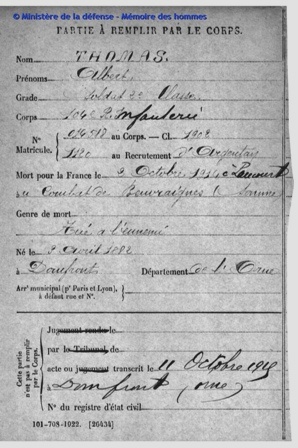 © Ministère de la défense - Mémoire des hommes
PARTIE À REMPLIR PAR LE CORPS.
Nom THOMAS.
Prénoms Albert
Grade Soldat 2e Classe
Corps 104e R. Infanterie
N° au Corps. — Cl. 1902
Matricule. 1120 au Recrutement d'Argentan
Mort pour la France le 3 Octobre 1914 à
au Combat de Beuvraignes (Somme
Genre de mort
Tué à l'ennemi
Né le 9 Avril 1882
à Domfront Département de l'Orne
Arrt municipal (pr Paris et Lyon),
à défaut rue et N°.
Cette partie n'est pas à remplir par le Corps.
Jugement rendu le
par le Tribunal de
acte ou jugement transcrit le 11 Octobre
à Domfront Orne
N° du registre d'état civil
101-708-1022. [26434]